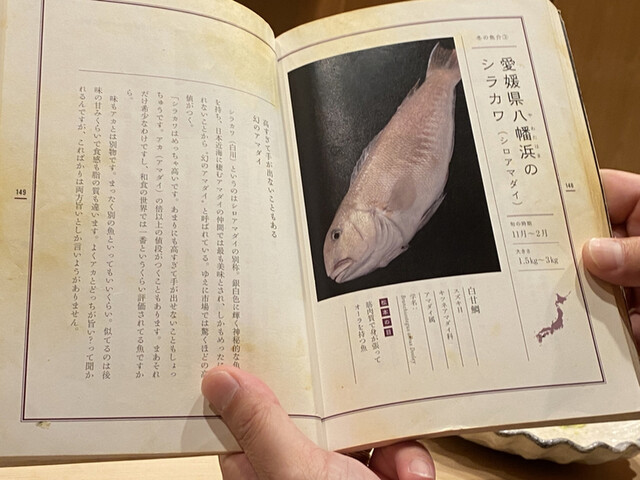 魚の紹介①
愛媛県八幡浜の
やわたはま
シラカワ（シロアマダイ）
旬の時期
11月～2月
大きさ
1.5kg～3kg
白甘鯛
スズキ目
キツネアマダイ科
アマダイ属
学名：
筋肉質で身が張って
オーラを持つ魚
148
高すぎて手が出ないこともある
幻のアマダイ
シラカワ（白川）というのはシロアマダイの別称。銀白色に輝く神秘的な魚
を持ち、日本近海に棲むアマダイの仲間では最も美味とされ、しかもめった
れないことから、“幻のアマダイ”と呼ばれている。ゆえに市場では驚くほどの高
値がつく。
「シラカワはめっちゃ高いです。あまりにも高すぎて手が出せないこともしょっ
ちゅうです。アカ（アマダイ）の倍以上の値段がつくこともあります。まあそれ
だけ希少なわけですし、和食の世界では一番というくらい評価されてる魚ですか
ら。
味もアカとは別物です。まったく別の魚といってもいいくらい。似てるのは後
味の甘みくらいで食感も脂の質も違います。よくアカとどっちが旨い？って聞か
れるんですが、こればかりは両方旨いとしか言いようがありません。
149